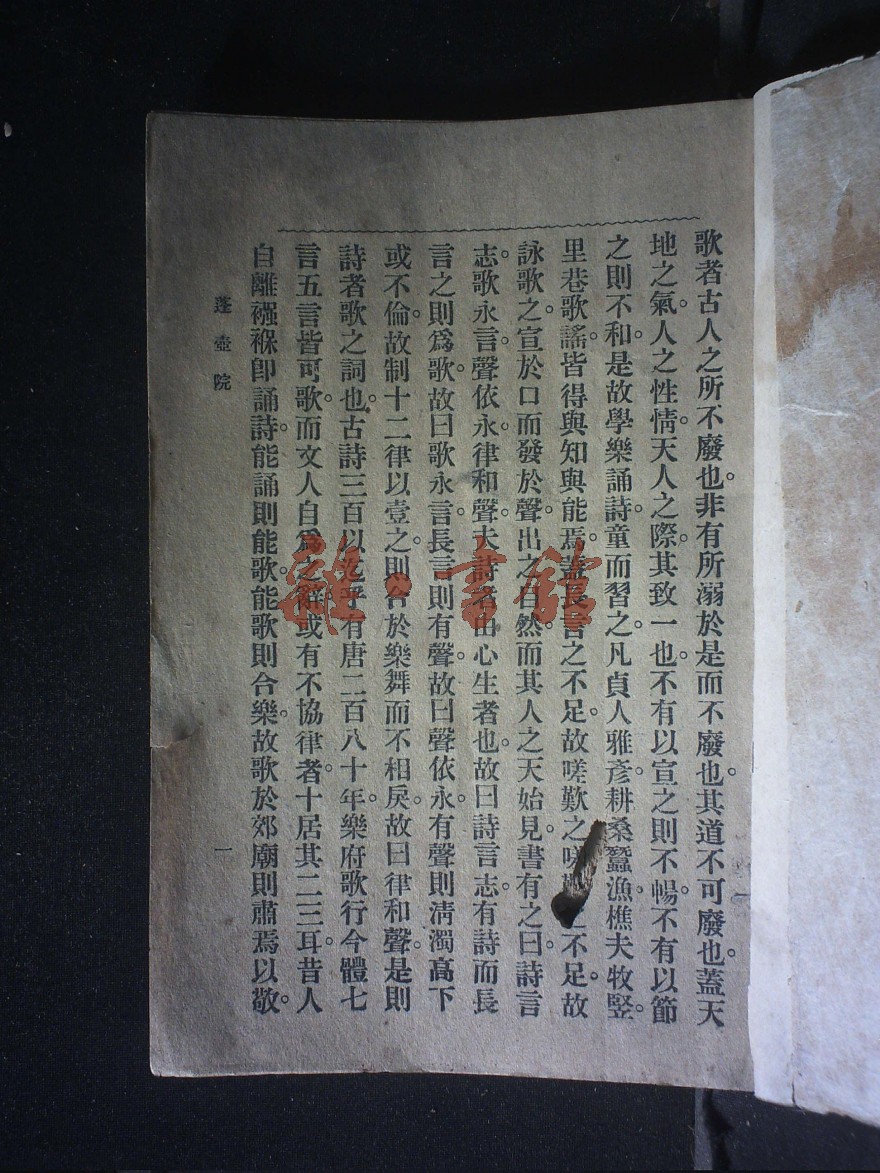 歌者古人之所不廢也。非有所溺於是而不廢也。其道不可廢也。蓋天
地之氣。人之性情。天人之際。其致一也。不有以宣之則不暢。不有以節
之則不和。是故學樂誦詩。童而習之。凡貞人雅彥。耕桑蠶漁樵夫牧豎。
里巷歌謠。皆得與知與能焉。蓋長言之不足。故嗟歎之。嗟不足。故
詠歌之。宣於口而發於聲。出之自然。而其人之天始見。書有之曰。詩言
志。歌永言。聲依永。律和聲。夫詩者由心生者也。故曰詩言志。有詩而長
言之則爲歌。故曰歌永言。長言則有聲。故曰聲依永。有聲則淸濁高下
或不倫。故制十二律以壹之。則合於樂舞而不相戾。故曰律和聲。是則
詩者歌之詞也。古詩三百以迄乎有唐二百八十年。樂府歌行今體七
言五言皆可歌。而文人自爲之辭。或有不協律者。十居其二三耳。昔人
自離襁褓卽誦詩。能誦則能歌。能歌則合樂。故歌於郊廟則肅焉以敬。
蓬壺院
一
雜·書館